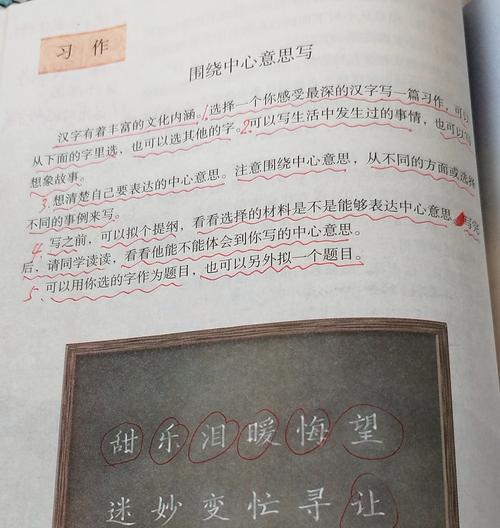 习作
围绕中心意思写
汉字有着丰富的文化内涵。1.选择一个你感受最深的汉字写一篇习作,可以
从下面的字里选,也可以选其他的字。2.可以写生活中发生过的事情,也可以写
想象故事。
3.想清楚自己要表达的中心意思。注意围绕中心意思,从不同的方面或选择
不同的事例来写。
4.写之前,可以拟个提纲,看看选择的材料是不是能够表达中心意思。写完
后,请同学读读,看看他能不能体会到你写的中心意思。
5.可以用你选的字作为题目,也可以另外拟一个题目。
甜 乐 泪 暖 悔 望
迷 妙 变 忙 寻 让